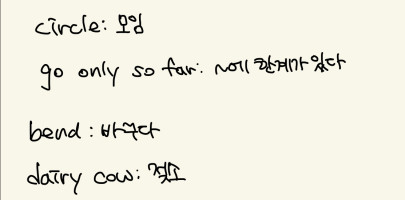 circle: 모임
go only so far: ~에 한계가 있다
bend: 바꾸다
dairy cow: 젖소